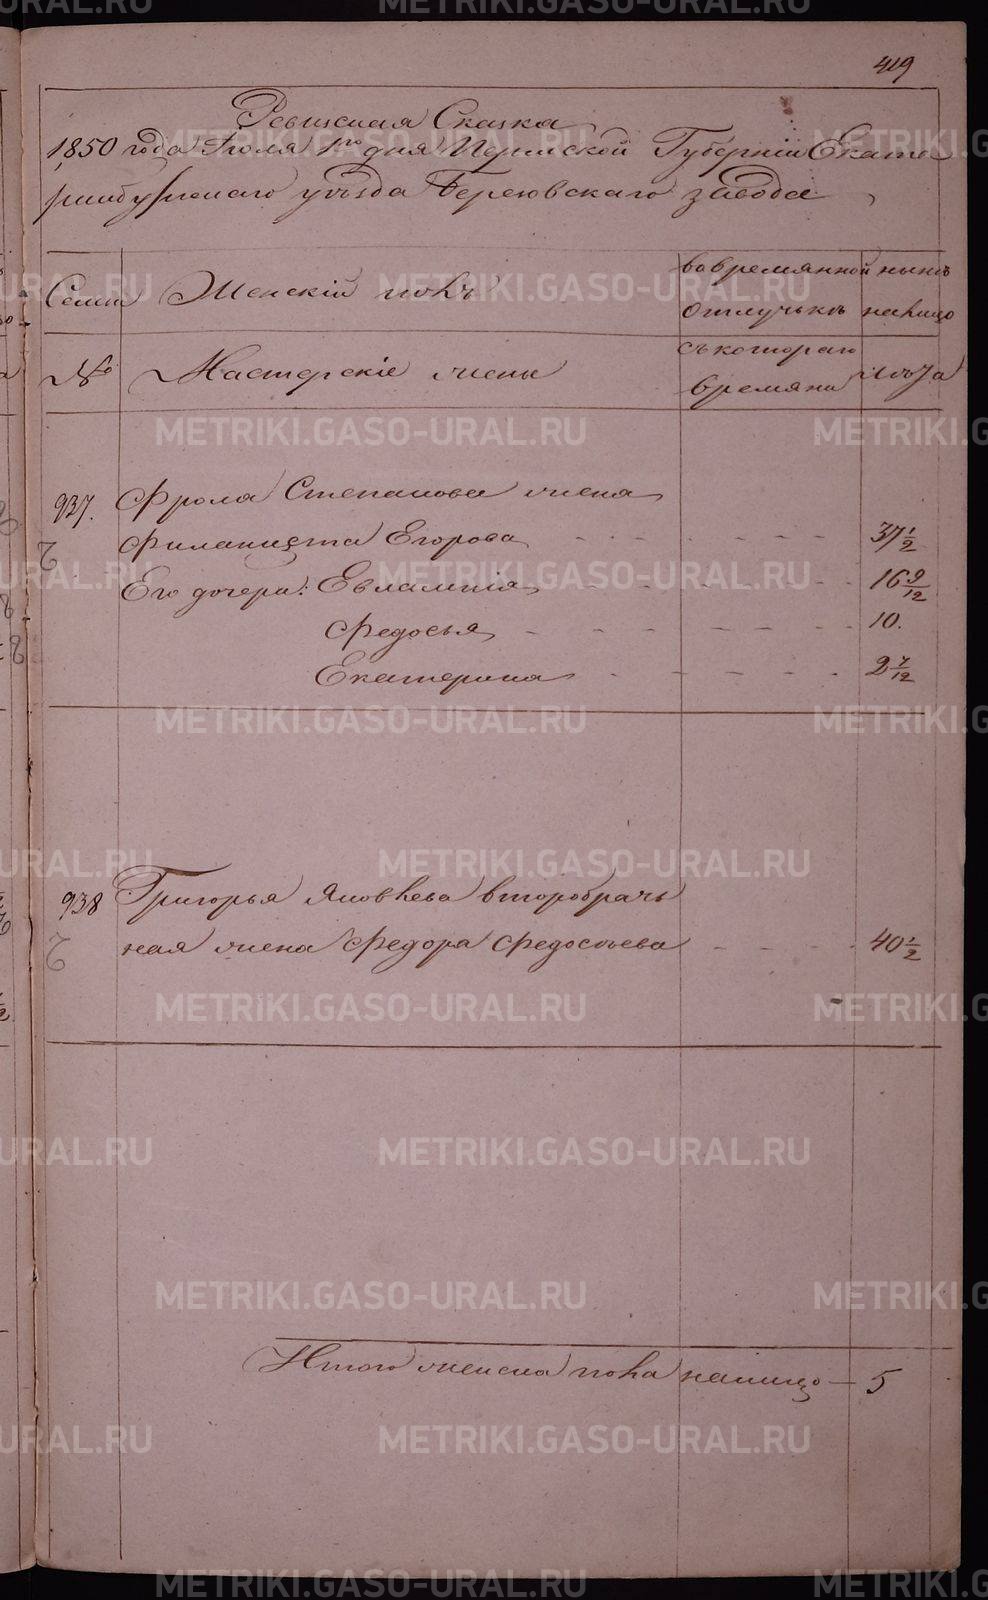 419
Ревизская Сказка
1850 года Іюля 1го дня Пермской Губерніи Екате
ринбургскаго уѣзда Березовскаго завода
Семьи Женскій полъ вовремянной нынѣ
отлучькѣ налицо
№ Мастерскіе жены съкотораго лѣта
времяни
937. Фрола Степанова жена
Филанцета Егорова 37 1/2
Его дочери: Евлампія 16 9/12
Федосья 10.
Екатерина 2 7/12
938 Григорья Яковлева второбрачь
ная жена Федора Федосѣева 40 1/2
Итого женска пола налицо — 5
METRIKI.GASO-URAL.RU